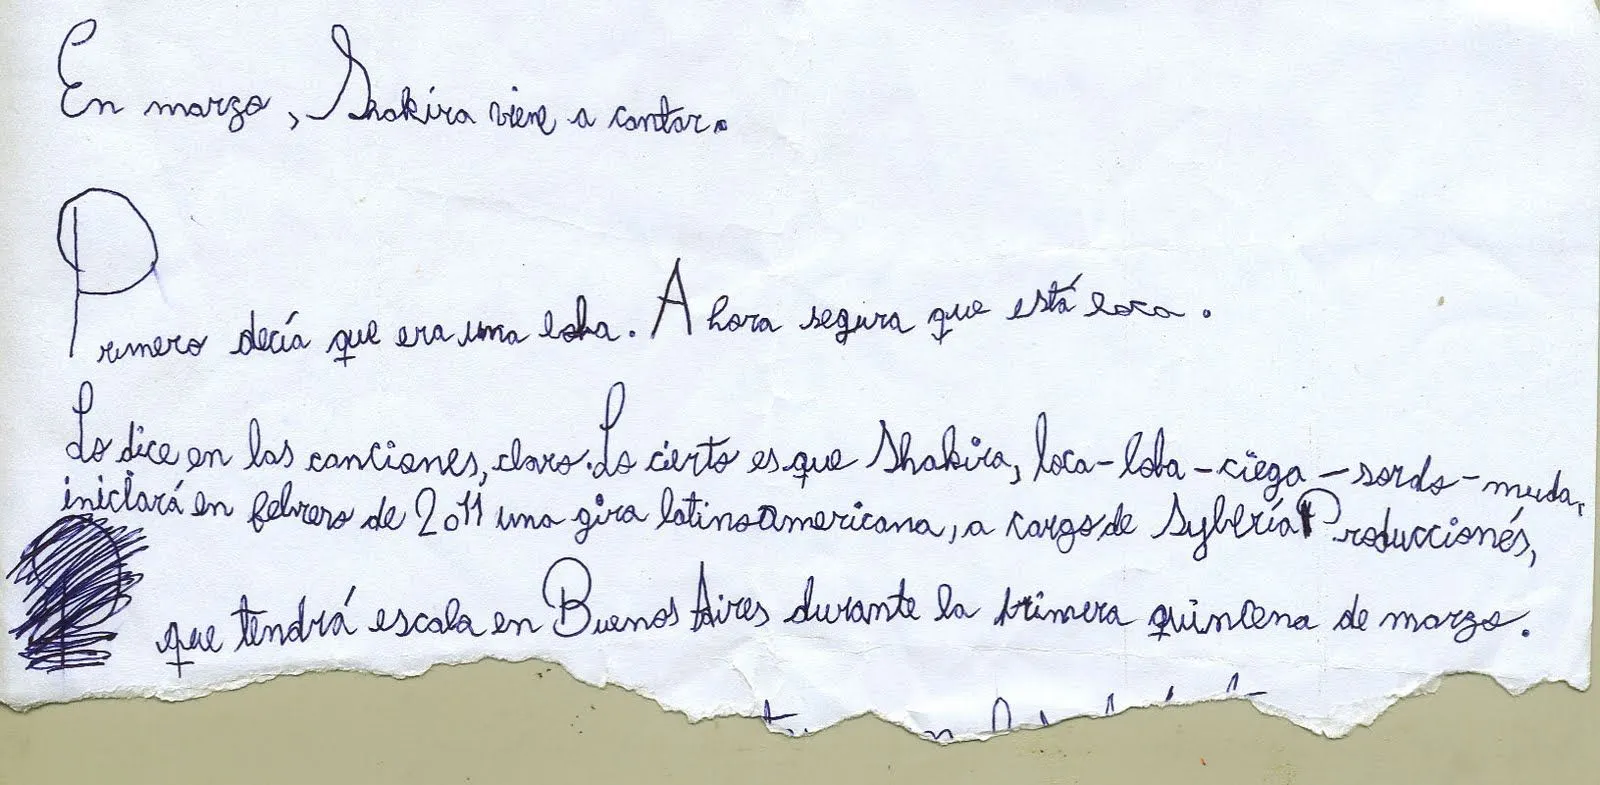 En marzo, Shakira viene a cantar.
Primero decía que era una loba. Ahora segura que está loca.
Lo dice en las canciones, claro. Lo cierto es que Shakira, loca-loba-ciega-sordo-muda,
iniciará en febrero de 2011 una gira latinoamericana, a cargo de Sybería Producciónes,
que tendrá escala en Buenos Aires durante la primera quincena de marzo.